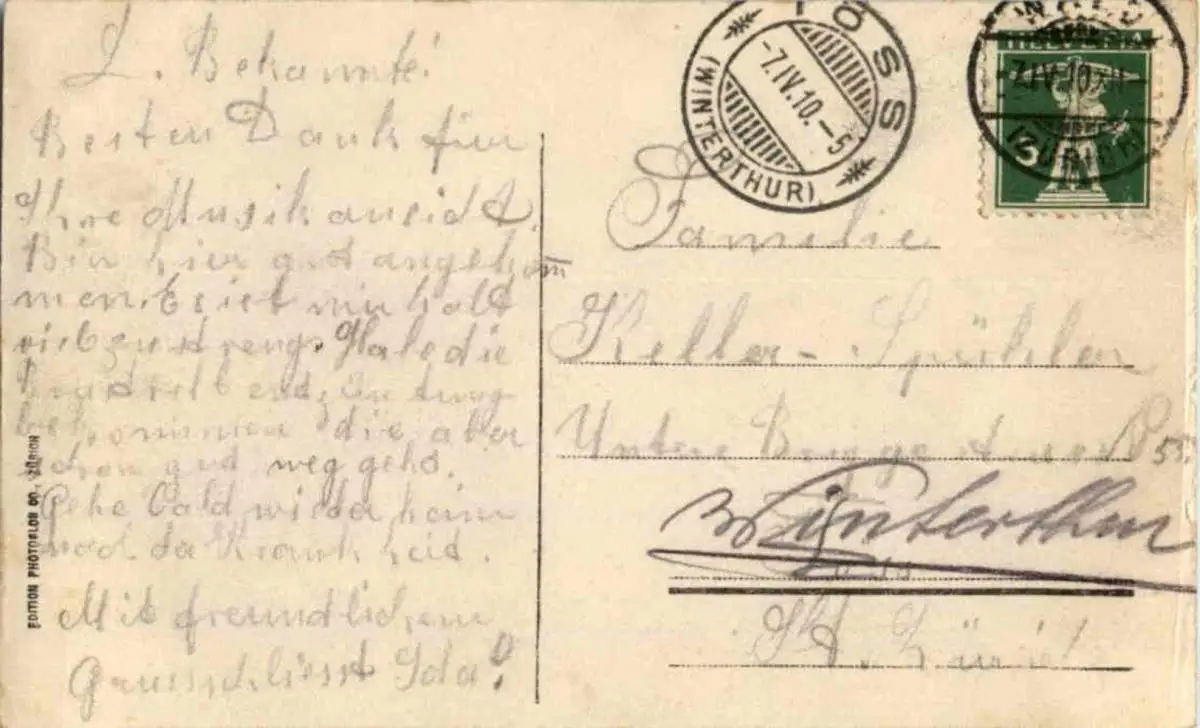 L. Bekannte!
Besten Dank für
Ihre Musikansicht.
Bin hier gut angekom
men. Es ist mir halt
Habe die
bekommen die aber
schon gud weg gehd.
Gehe bald wieder heim
da Krankheid.
Mit freundlichem
Gruss schliesst Ida!
EDITION PHOTOGLOB CO. ZÜRICH
TÖSS
(WINTERTHUR)
-7.IV.10.-5
HELVETIA
-7.IV.10.
5
(ZÜRICH)
Familie
Keller-Spühler
Untere 55.
Winterthur
Töss
Kt. Zürich